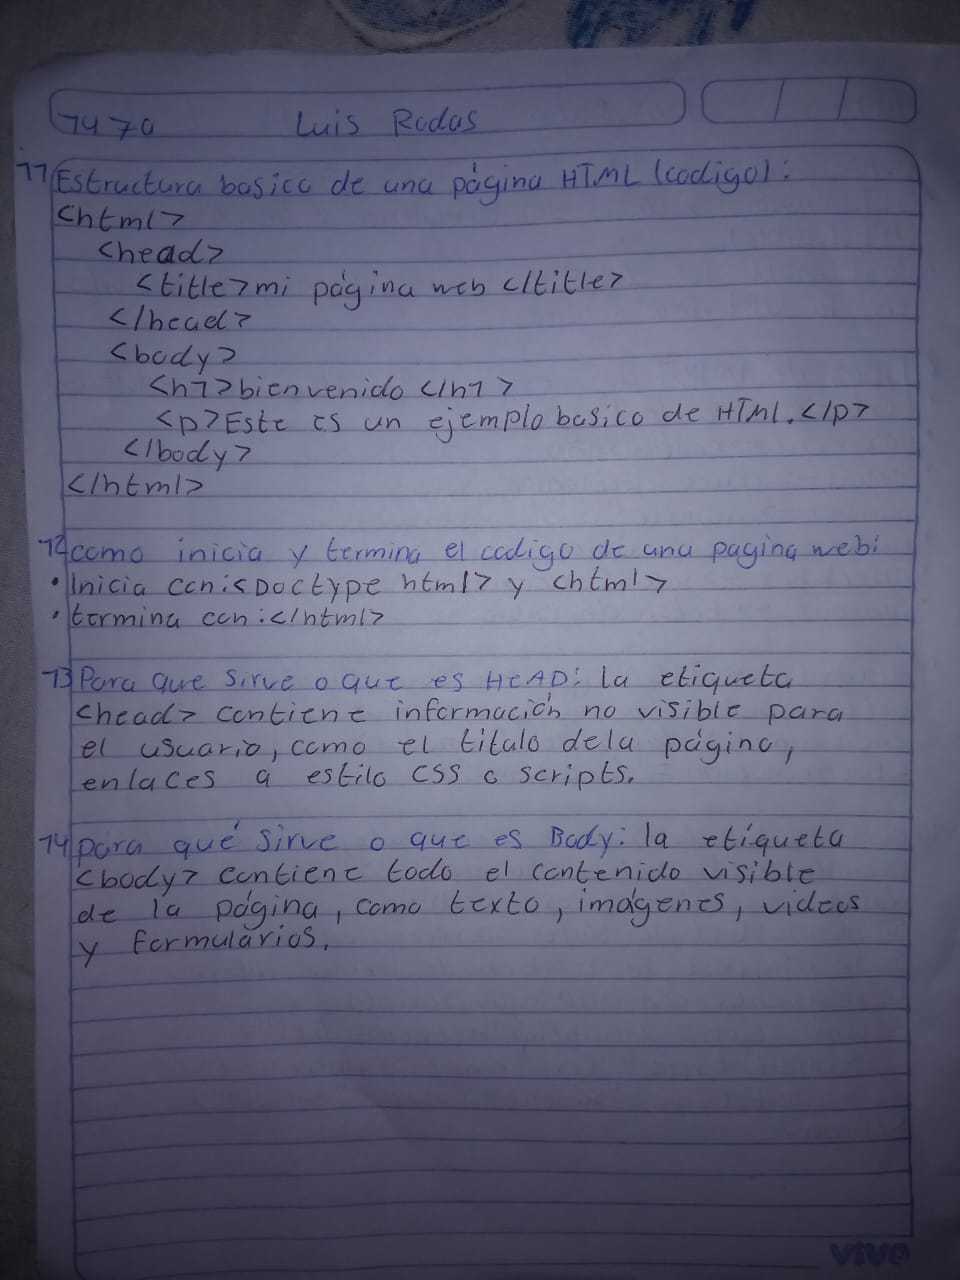 1470 Luis Rodas
11 Estructura basica de una página HTML (codigo):
<html>
<head>
<title>mi página web </title>
</head>
<body>
<h1>bienvenido </h1>
<p>Este es un ejemplo basico de HTML.</p>
</body>
</html>
12 como inicia y termina el codigo de una pagina web:
• Inicia con: <DOCtype html> y <html>
• termina con: </html>
13 Para que sirve o que es HEAD: la etiqueta
<head> contiene información no visible para
el usuario, como el titulo dela página,
enlaces a estilo CSS o scripts.
14 para qué sirve o que es Body: la etiqueta
<body> contiene todo el contenido visible
de la página, como texto, imágenes, videos
y formularios.
vivo